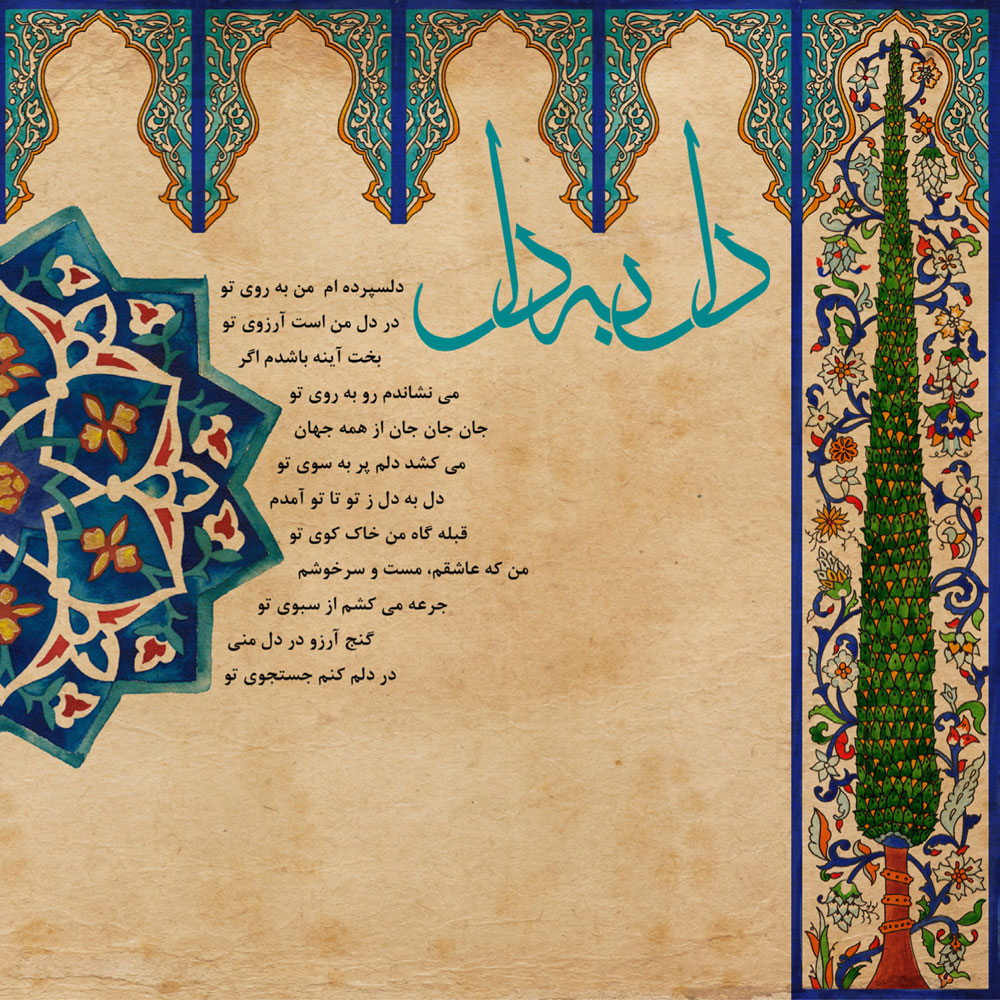 دل به دل
دلسپرده ام من به روی تو
در دل من است آرزوی تو
بخت آینه باشدم اگر
می نشاندم رو به روی تو
جان جان جان از همه جهان
می کشد دلم پر به سوی تو
دل به دل ز تو تا تو آمدم
قبله گاه من خاک کوی تو
من که عاشقم، مست و سرخوشم
جرعه می کشم از سبوی تو
گنج آرزو در دل منی
در دلم کنم جستجوی تو